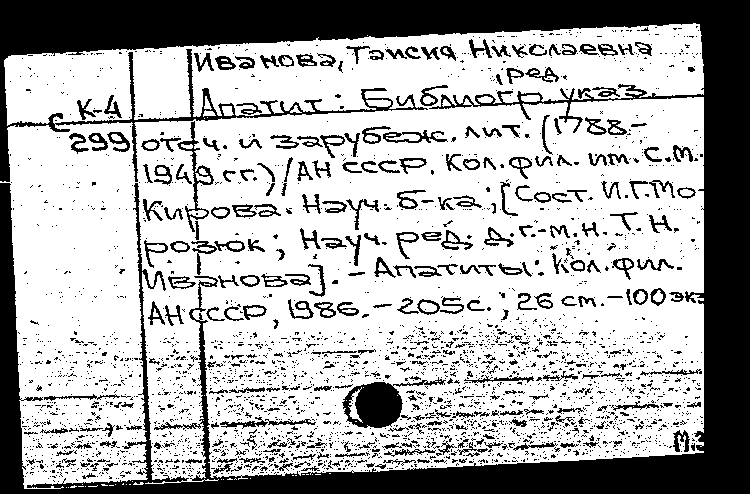 Иванова, Таисия Николаевна
, ред.
Апатит: Библиогр. указ.
с К-4
299
отеч. и зарубеж. лит. (1788-
1949 гг.)/АН СССР. Кол. фил. им. С.М.
Кирова. Науч. б-ка; [Сост. И.Г. Мо-
розюк; Науч. ред. д. г.-м. н. Т. Н.
Иванова]. - Апатиты: Кол. фил.
АН СССР, 1986. - 205 с.; 26 см. - 100 экз